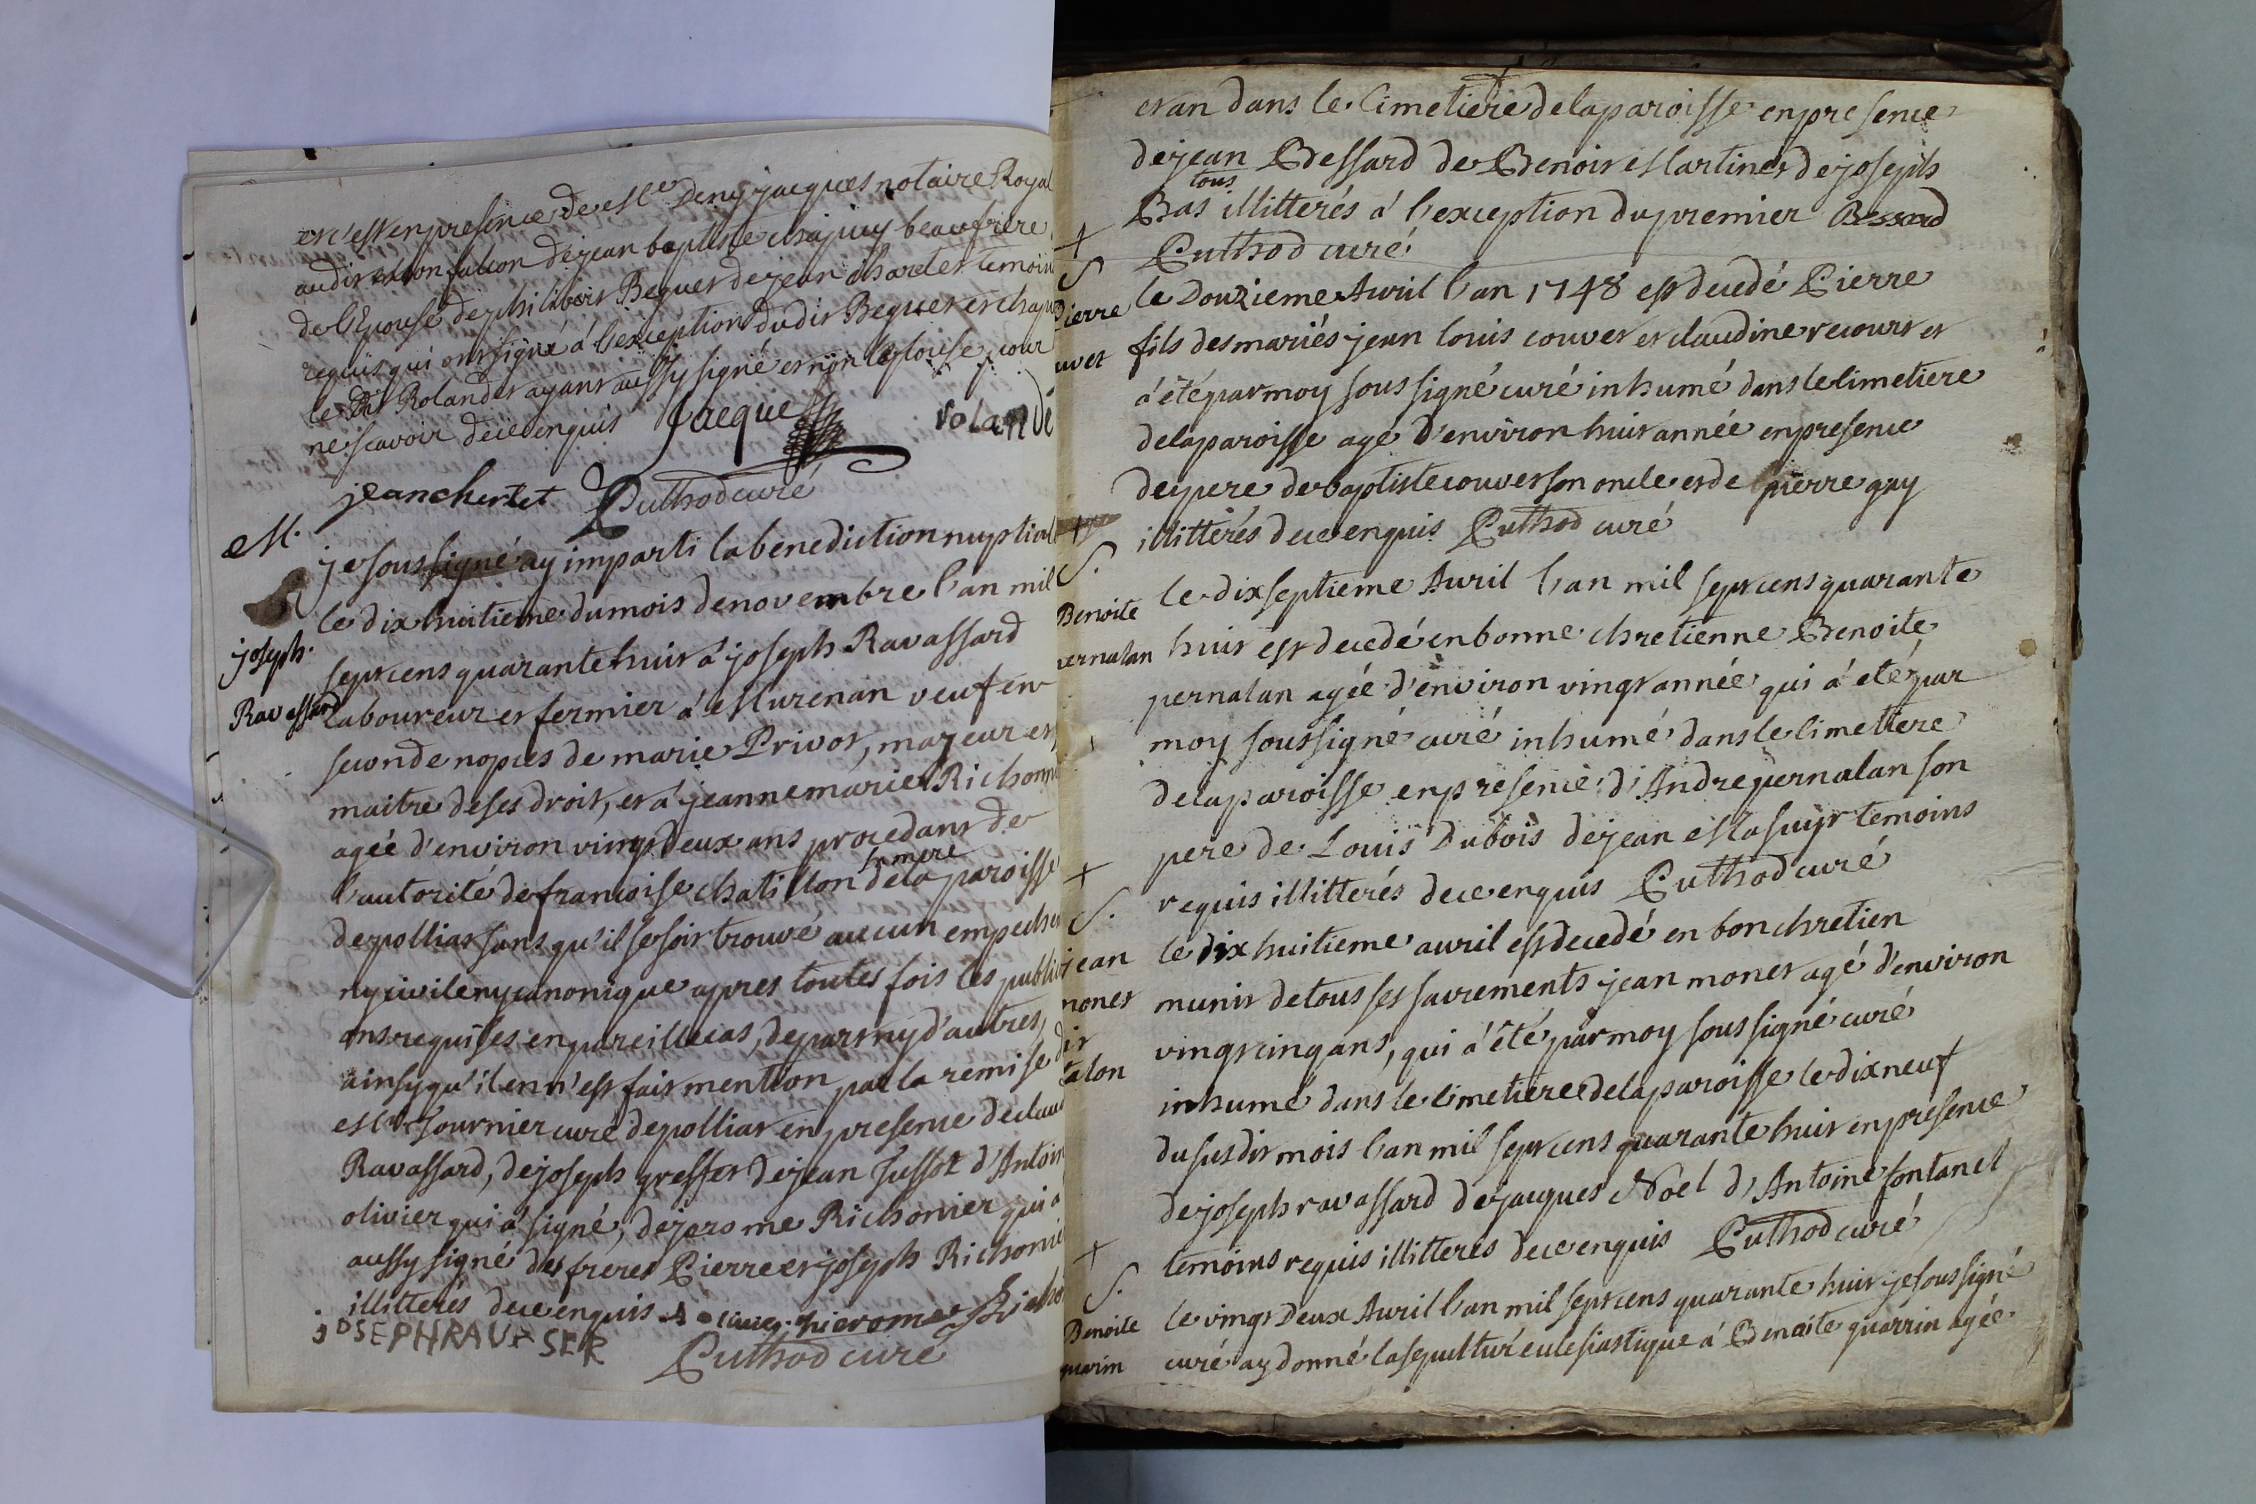 et c'est en presence de Mr Deny jacques notaire Royal
audit Monfalcon de jean baptiste chajuy beaufrere
de l'Epouse de philibert Beguet de jean chartet temoin
requis qui ont signé á l'exception dudit Beguet et
le Rolandet ayant aussy signé et non l'Epouse pour
ne scavoir dece enquis Jacque rolande
jean chertet Puthod curé
M.
je soussigné ay imparti la benediction nuptial
le dix huitieme du mois de novembre l'an mil
joseph.
sept cens quarante huit á joseph Ravassard
Ravassard
laboureur et fermier á Murenan veuf en
seconde nopces de marie Privot, majeur et
maitre de ses droit, et á jeanne marie Richonn
agée d'environ vingt deux ans procedant de
l'autorité de francoise chatillon sa mere de la paroisse
de polliat sans qu'il se soit trouvé aucun empeche
ny civile ny canonique apres toutes fois les publi
ons requises en pareille cas, de par my d'autres,
ainsy qu'il en n'est fait mention par la remise
Mr fournier curé de polliat en presence de clau
Ravassard, de joseph greffet de jean Jussot d'Antoin
olivier qui á signé, de jerome Richonier qui á
aussy signé des freres Pierre et joseph Richonie
illitterés dece enquis A olivier hierome Richo
jOSEPH RAVASER Puthod curé
et an dans le Cimetiere de la paroisse en presence
de jean Bessard de Benoit Martinet de joseph
Bas tous illitterés á l'exception du premier Bessard
Puthod curé
+
S
Pierre
uvet
le Douzieme Avril l'an 1748 est decedé Pierre
fils des mariés jean louis couvet et claudine recourt et
á été par moy soussigné curé inhumé dans le Cimetiere
de la paroisse agé d'environ huit année en presence
de pere de baptiste couvet son oncle et de pierre guy
illitterés dece enquis Puthod curé
+
S.
Benoite
pernatan
le dix septieme Avril l'an mil sept cens quarante
huit est decedé en bonne chretienne Benoite
pernatan agée d'environ vingt année qui á été par
moy soussigné curé inhumé dans le Cimetiere
de la paroisse en presence d'Andre pernatan son
pere de Louis Dubois de jean Masuyr temoins
requis illitterés dece enquis Puthod curé
+
S.
jean
monet
dit
talon
le dix huitieme avril est decedé en bon chretien
munit de tous ses sacrements jean monet agé d'environ
vingt cinq ans, qui á été par moy soussigné curé
inhumé dans le Cimetiere de la paroisse le dix neuf
du susdit mois l'an mil sept cens quarante huit en presence
de joseph ravassard de jacques Noel d'Antoine fontanel
temoins requis illitterés dece enquis Puthod curé
+
S.
Benoite
guarin
le vingt Deux Avril l'an mil sept cens quarante huit je soussigné
curé ay donné la sepulturé eclesiastique á Benoite guarrin agée